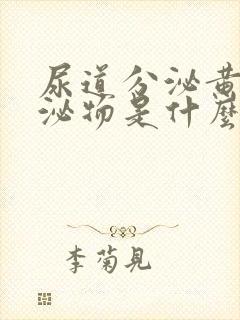 尿道分泌黄
泌物是什麼
李菊見